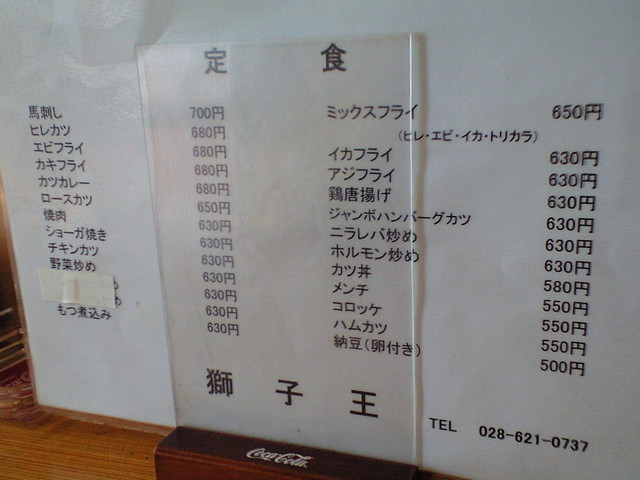 定食
馬刺し 700円
ヒレカツ 680円
エビフライ 680円
カキフライ 680円
カツカレー 680円
ロースカツ 650円
焼肉 630円
ショーガ焼き 630円
チキンカツ 630円
野菜炒め 630円
め 630円
め 630円
もつ煮込み 630円
ミックスフライ 650円
（ヒレ・エビ・イカ・トリカラ）
イカフライ 630円
アジフライ 630円
鶏唐揚げ 630円
ジャンボハンバーグカツ 630円
ニラレバ炒め 630円
ホルモン炒め 630円
カツ丼 580円
メンチ 550円
コロッケ 550円
ハムカツ 550円
納豆（卵付き） 500円
獅子王
TEL 028-621-0737
Coca-Cola